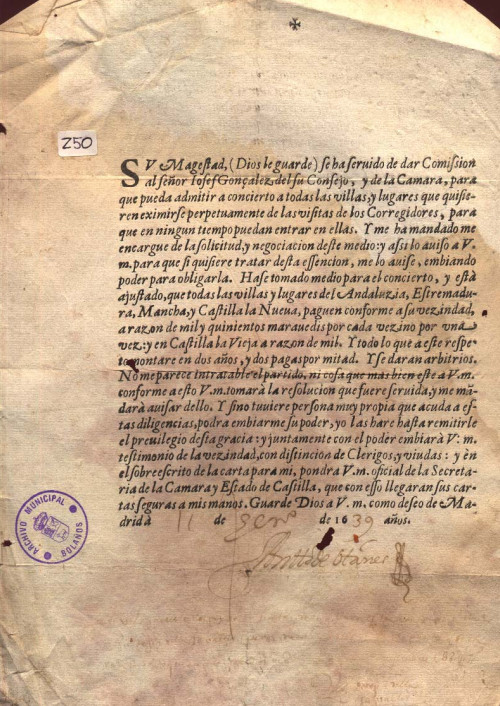 250
SV Magestad, (Dios le guarde) se ha seruido de dar Comission
al señor Iosef Gonçalez, del su Consejo, y de la Camara, para
que pueda admitir a concierto a todas las villas, y lugares que quisie-
ren eximirse perpetuamente de las visitas de los Corregidores, para
que en ningun tiempo puedan entrar en ellas. Y me ha mandado me
encargue de la solicitud, y negociacion deste medio: y assi lo auiso a V.
m. para que si quisiere tratar desta essencion, me lo auise, embiando
poder para obligarla. Hase tomado medio para el concierto, y està
ajustado, que todas las villas y lugares del Andaluzia, Estremadu-
ra, Mancha, y Castilla la Nueua, paguen conforme a su vezindad,
a razon de mil y quinientos marauedis por cada vezino por vna
vez: y en Castilla la Vieja a razon de mil. Y todo lo que a este respe-
to montare en dos años, y dos pagas por mitad. Y se daran arbitrios.
No me parece intratable el partido, ni cosa que mas bien este a V.m.
conforme a esto V.m. tomarà la resolucion que fuere seruida, y me mã-
darà auisar dello. Y si no tuuiere persona muy propia que acuda a es-
tas diligencias, podra embiarme su poder, yo las hare hasta remitirle
el preuilegio desta gracia: y juntamente con el poder embiarà V: m.
testimonio de la vezindad, con distincion de Clerigos, y viudas: y en
el sobreescrito de la carta para mi, pondra V.m. oficial de la Secreta-
ria de la Camara y Estado de Castilla, que con esso llegaran sus car-
tas seguras a mis manos. Guarde Dios a V. m. como deseo de Ma-
drid à 11 de de 1639 años.
ARCHIVO MUNICIPAL
BOLAÑOS